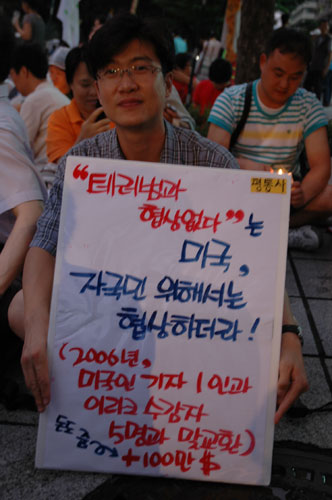 "테러범과
협상없다"는
평통사
미국,
자국민 위해서는
협상하더라!
(2006년,
미국인 기자 1인과
이라크 수감자
5명과 맞교환)
돈도 줌~
+100만$